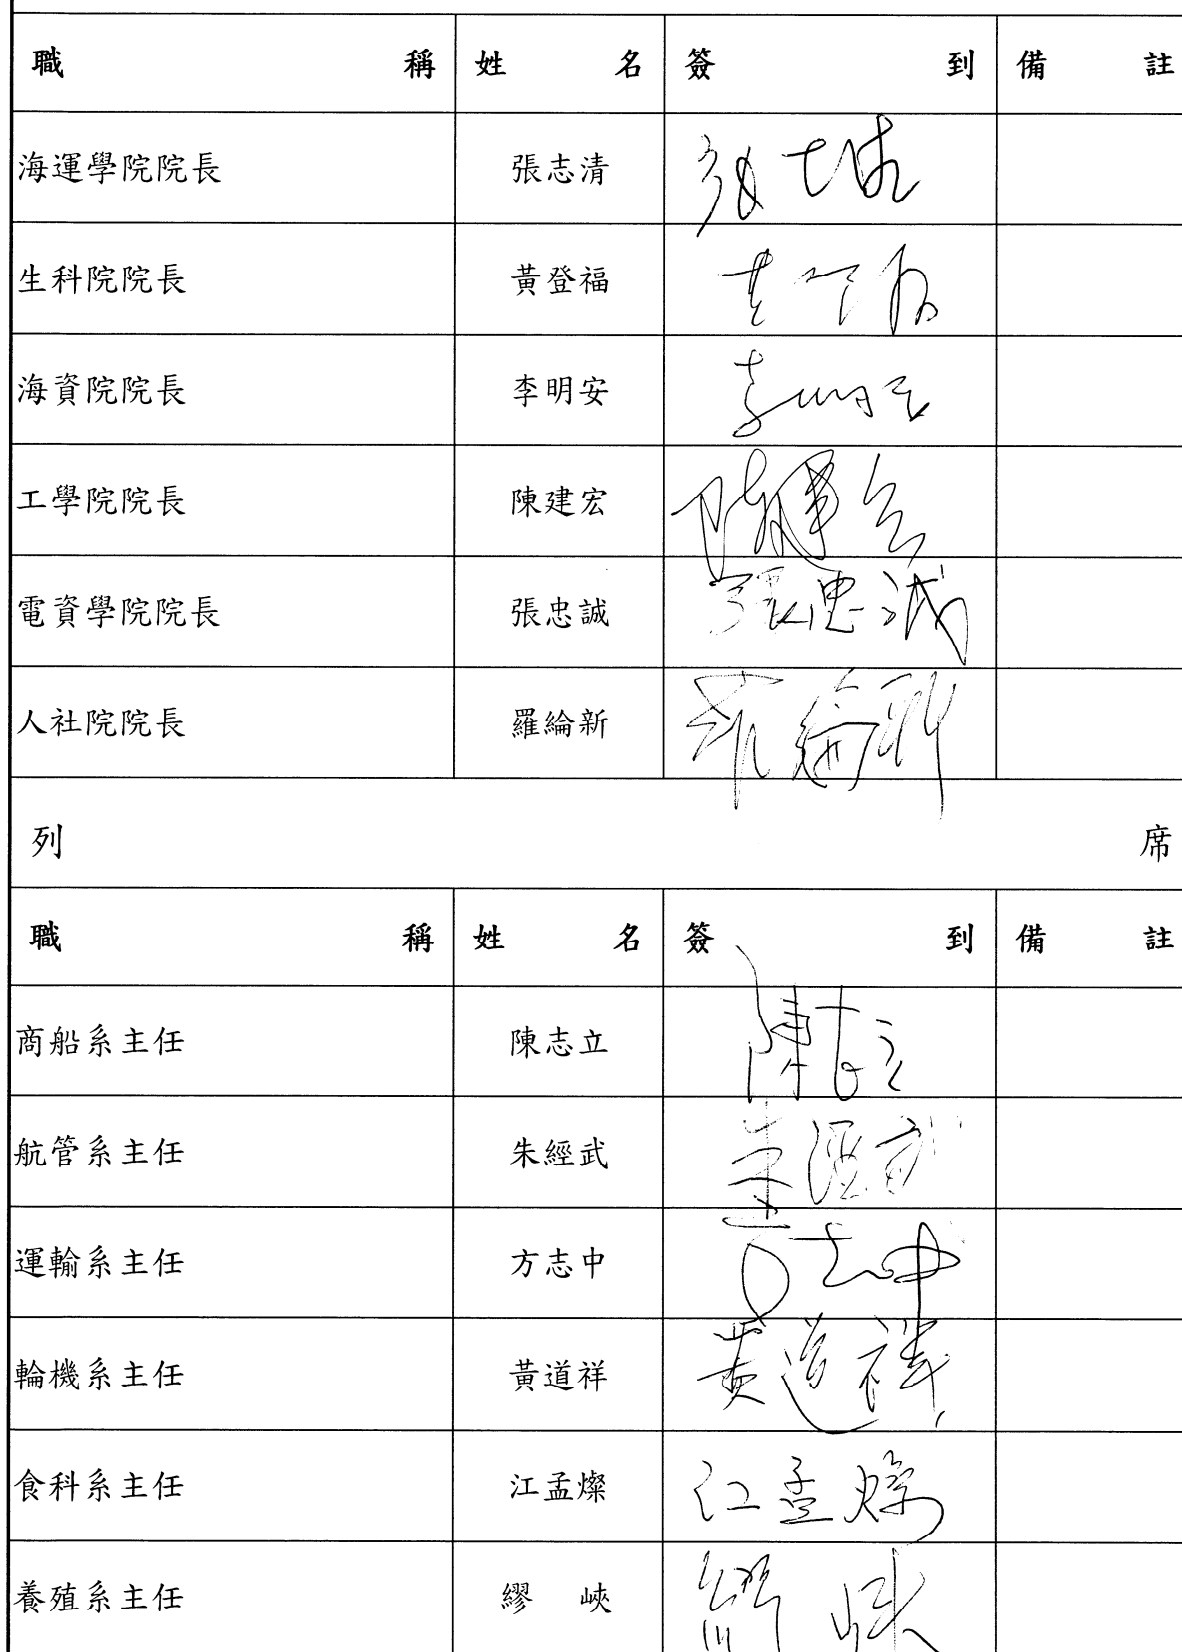 職稱 姓名 簽到 備註
海運學院院長 張志清 張志清
生科院院長 黃登福 黃登福
海資院院長 李明安 李明安
工學院院長 陳建宏 陳建宏
電資學院院長 張忠誠 張忠誠
人社院院長 羅綸新 羅綸新
列席
職稱 姓名 簽到 備註
商船系主任 陳志立 陳志立
航管系主任 朱經武 朱經武
運輸系主任 方志中 方志中
輪機系主任 黃道祥 黃道祥
食科系主任 江孟燦 江孟燦
養殖系主任 繆峽 繆峽